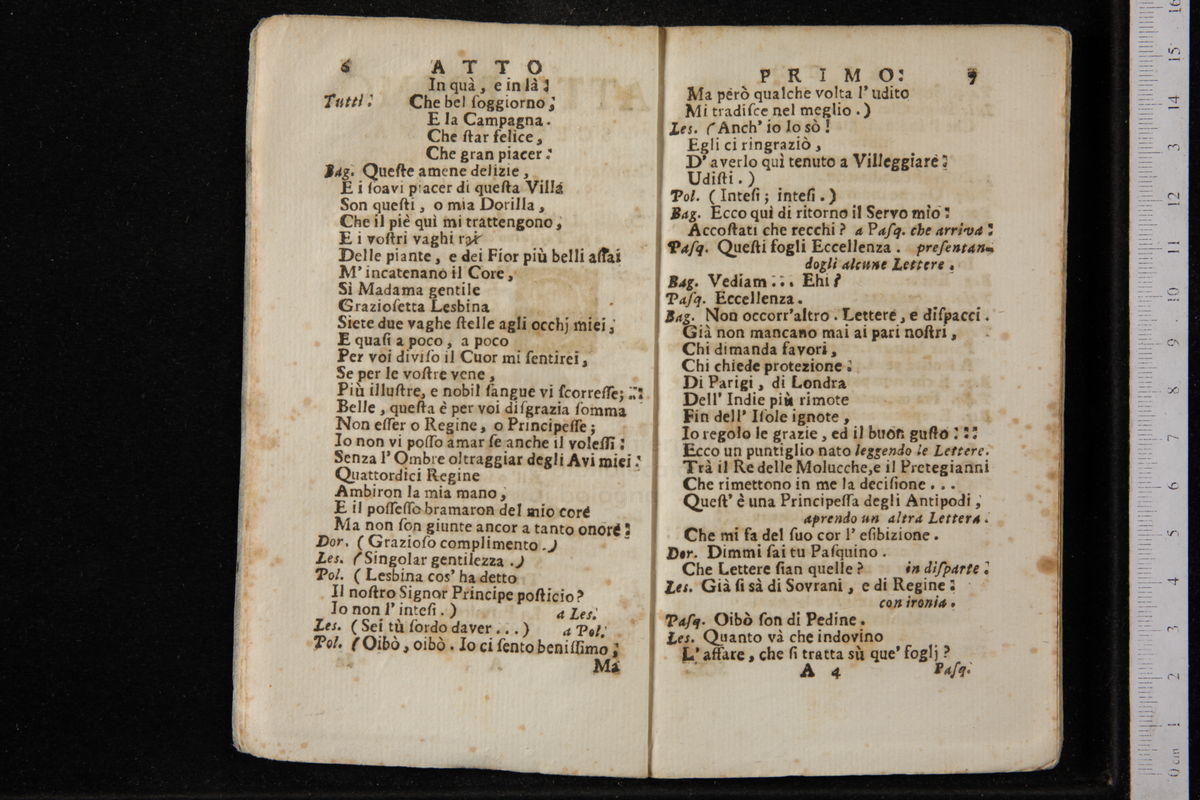 6 ATTO
In quà, e in là:
Tutti: Che bel ſoggiorno;
E la Campagna.
Che ſtar felice,
Che gran piacer:
Bag. Queſte amene delizie,
E i ſoavi piacer di queſta Villa
Son queſti, o mia Dorilla,
Che il piè quì mi trattengono;
E i voſtri vaghi rai
Delle piante, e dei Fior più belli aſſai
M'incatenano il Core,
Sì Madama gentile
Grazioſetta Lesbina
Siete due vaghe ſtelle agli occhj miei;
E quaſi a poco, a poco
Per voi diviſo il Cuor mi ſentirei,
Se per le voſtre vene,
Più illuſtre, e nobil ſangue vi ſcorreſſe; ...
Belle, queſta è per voi diſgrazia ſomma
Non eſſer o Regine, o Principeſſe;
Io non vi poſſo amar ſe anche il voleſſi:
Senza l'Ombre oltraggiar degli Avi miei:
Quattordici Regine
Ambiron la mia mano,
E il poſſeſſo bramaron del mio core
Ma non ſon giunte ancor a tanto onore:
Dor. (Grazioſo complimento.)
Les. (Singolar gentilezza.)
Pol. (Lesbina cos'ha detto
Il noſtro Signor Principe poſticio?
Io non l'inteſi.) a Les.
Les. (Sei tù ſordo daver...) a Pol.
Pol. (Oibò, oibò. Io ci ſento beniſſimo;
Ma
PRIMO: 7
Ma però qualche volta l'udito
Mi tradiſce nel meglio.)
Les. (Anch'io lo sò!
Egli ci ringraziò,
D'averlo quì tenuto a Villeggiare:
Udiſti.)
Pol. (Inteſi; inteſi.)
Bag. Ecco quì di ritorno il Servo mìo:
Accoſtati che recchi? a Paſq. che arriva:
Paſq. Queſti fogli Eccellenza. preſentan-
dogli alcune Lettere.
Bag. Vediam.... Ehi?
Paſq. Eccellenza.
Bag. Non occorr'altro. Lettere, e diſpacci.
Già non mancano mai ai pari noſtri,
Chi dimanda favori,
Chi chiede protezione:
Di Parigi, di Londra
Dell'Indie più rimote
Fin dell'Iſole ignote,
Io regolo le grazie, ed il buon guſto:::
Ecco un puntiglio nato leggendo le Lettere.
Trà il Re delle Molucche,e il Pretegianni
Che rimettono in me la deciſione...
Queſt'è una Principeſſa degli Antipodi,
aprendo un altra Lettera.
Che mi fa del ſuo cor l'eſibizione.
Dor. Dimmi ſai tu Paſquino.
Che Lettere ſian quelle? in diſparte:
Les. Già ſi sà di Sovrani, e di Regine:
con ironia.
Paſq. Oibò ſon di Pedine.
Les. Quanto và che indovino
L'affare, che ſi tratta sù que' foglj?
A 4 Paſq.